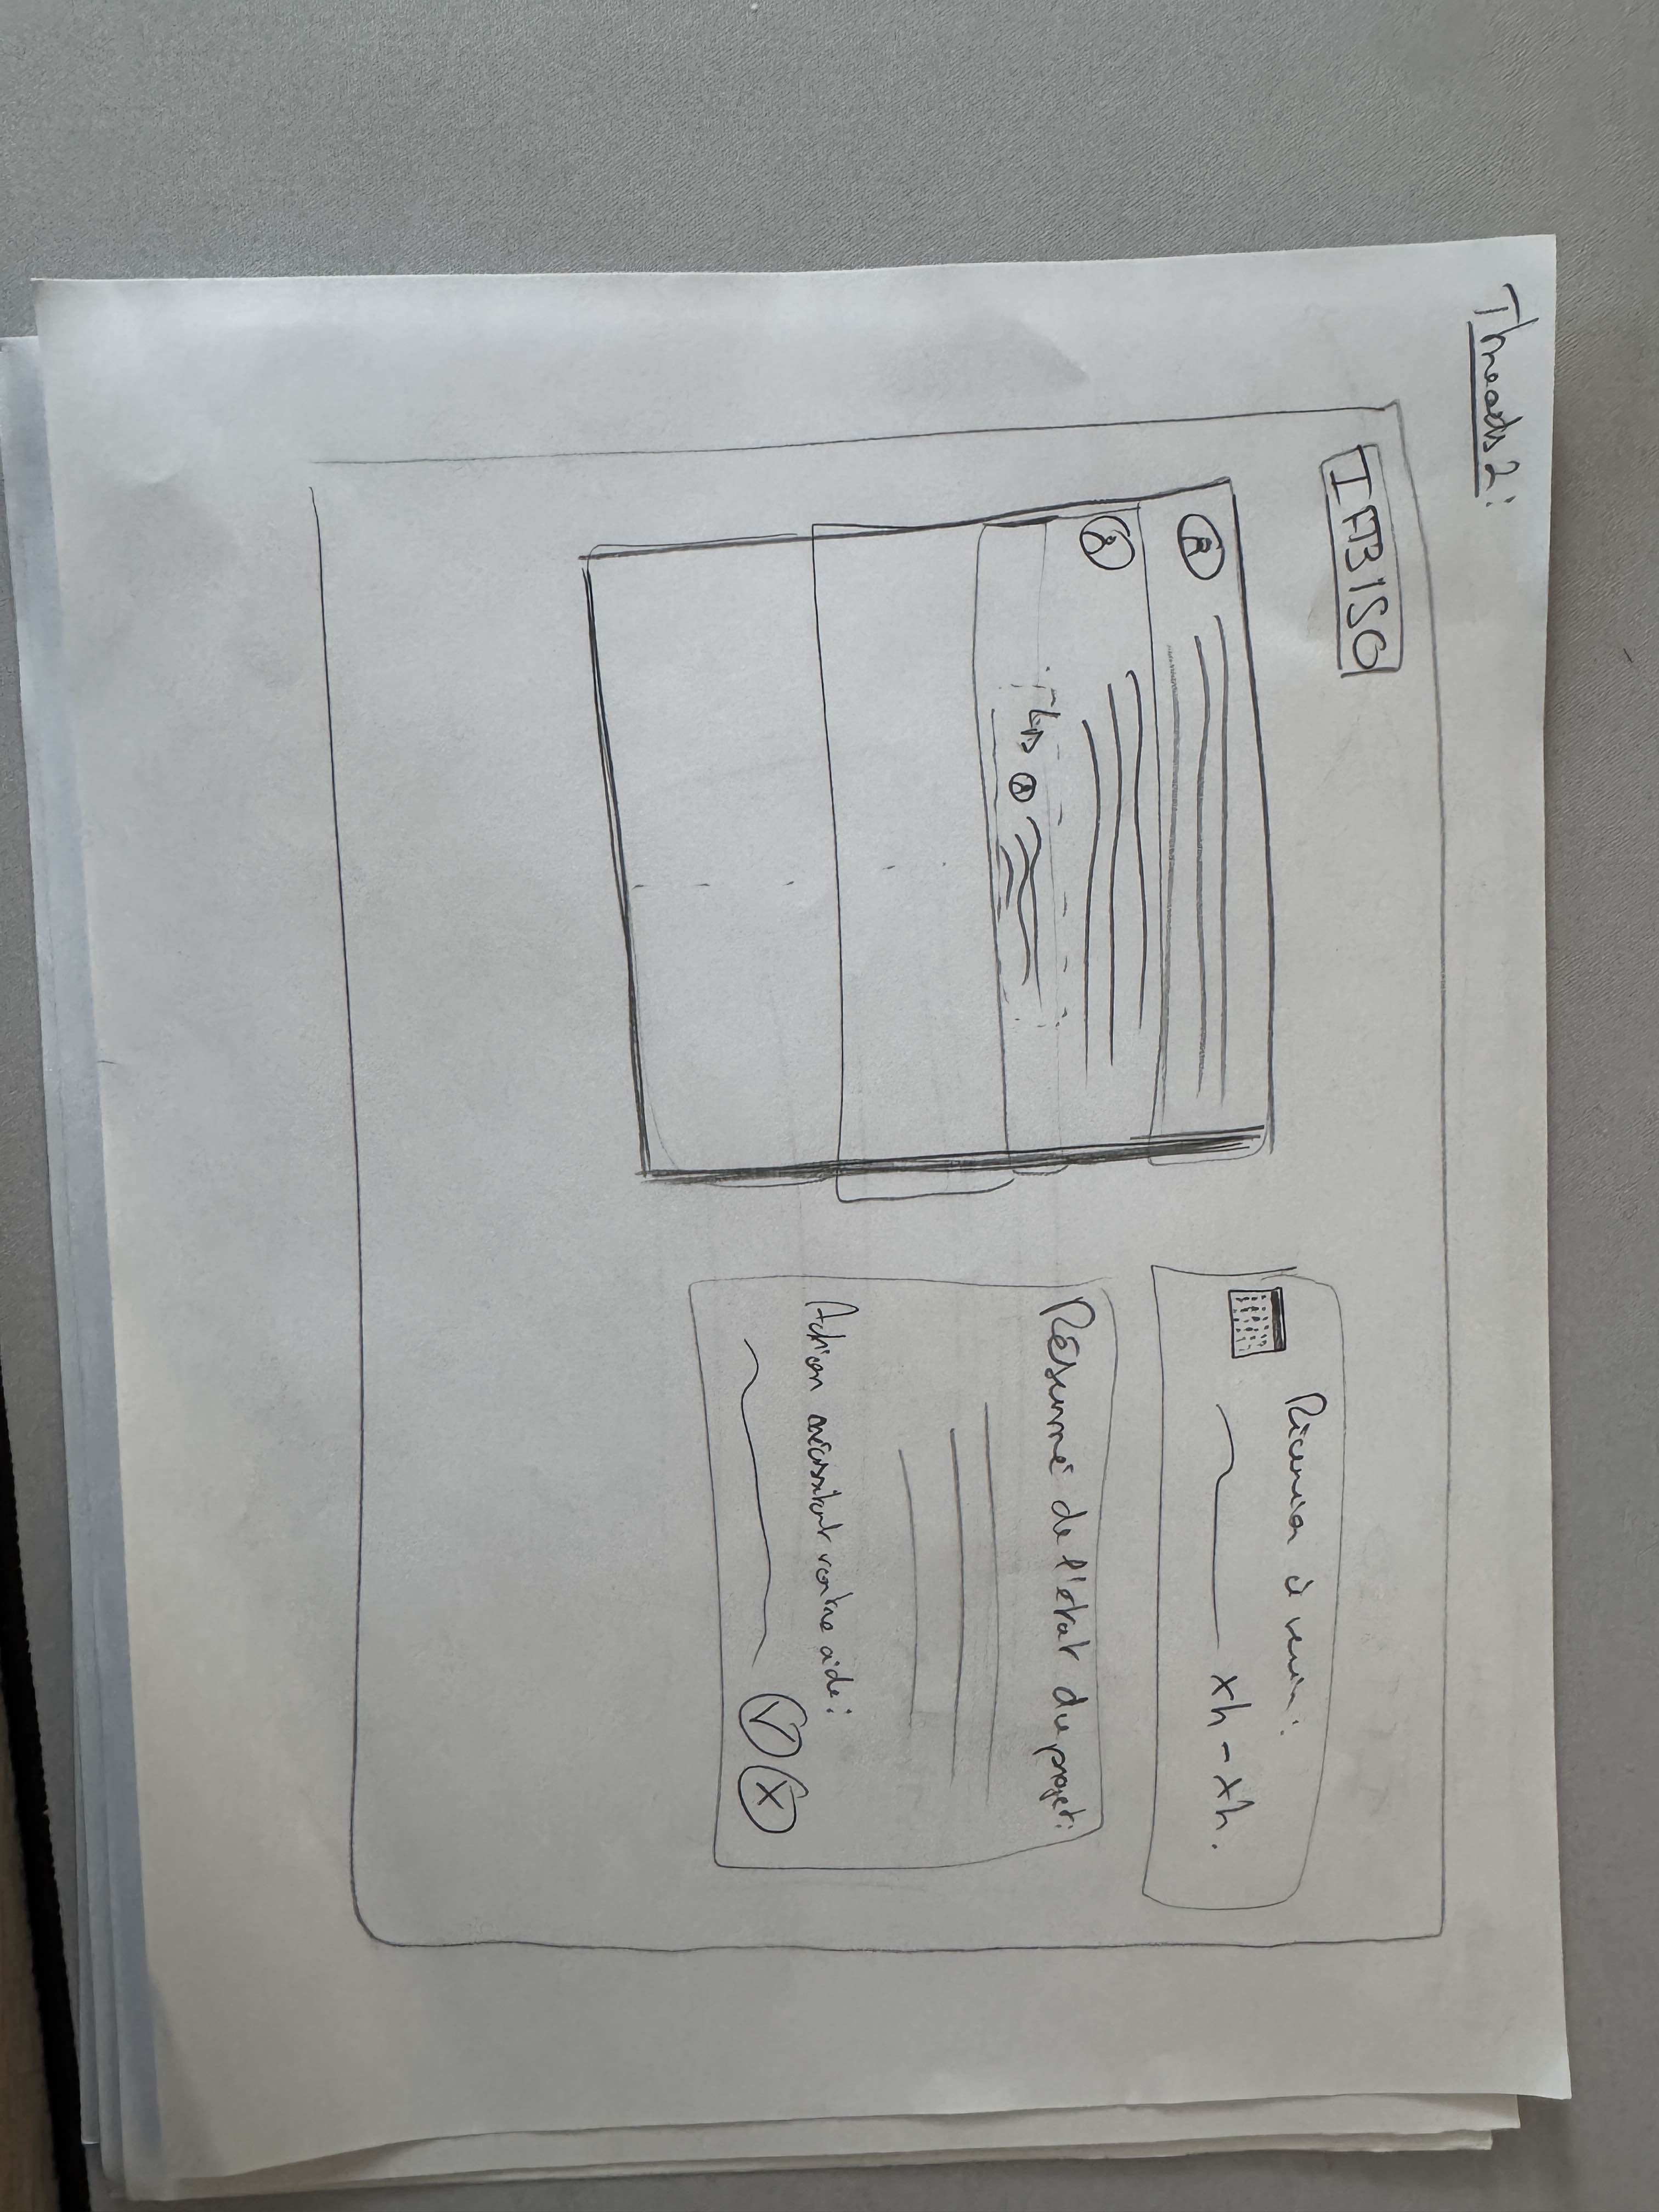 Threads 2:
IABISO
Réunion à venir :
xh - xh.
Résumé de l'état du projet :
Action nécessitant votre aide :